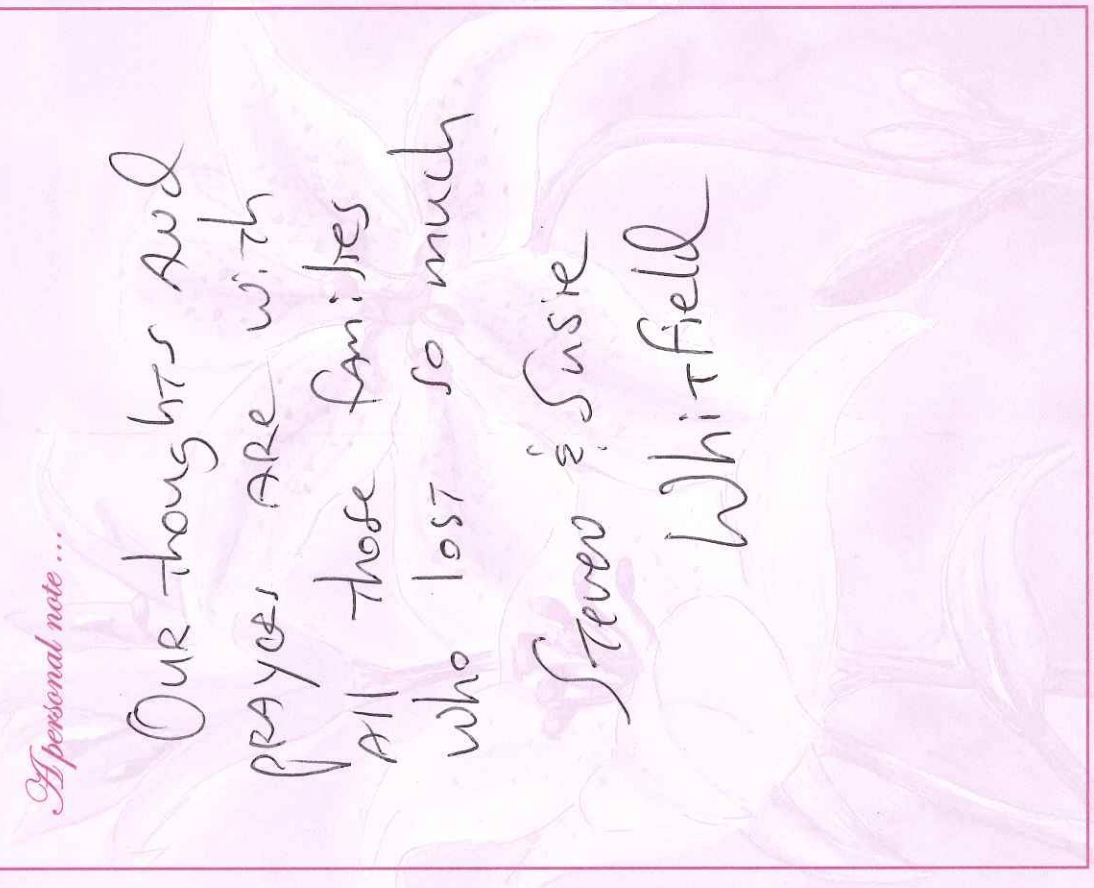 A personal note ...
Our thoughts and
prayers are with
all those families
who lost so much
Steven & Susie
Whitfield